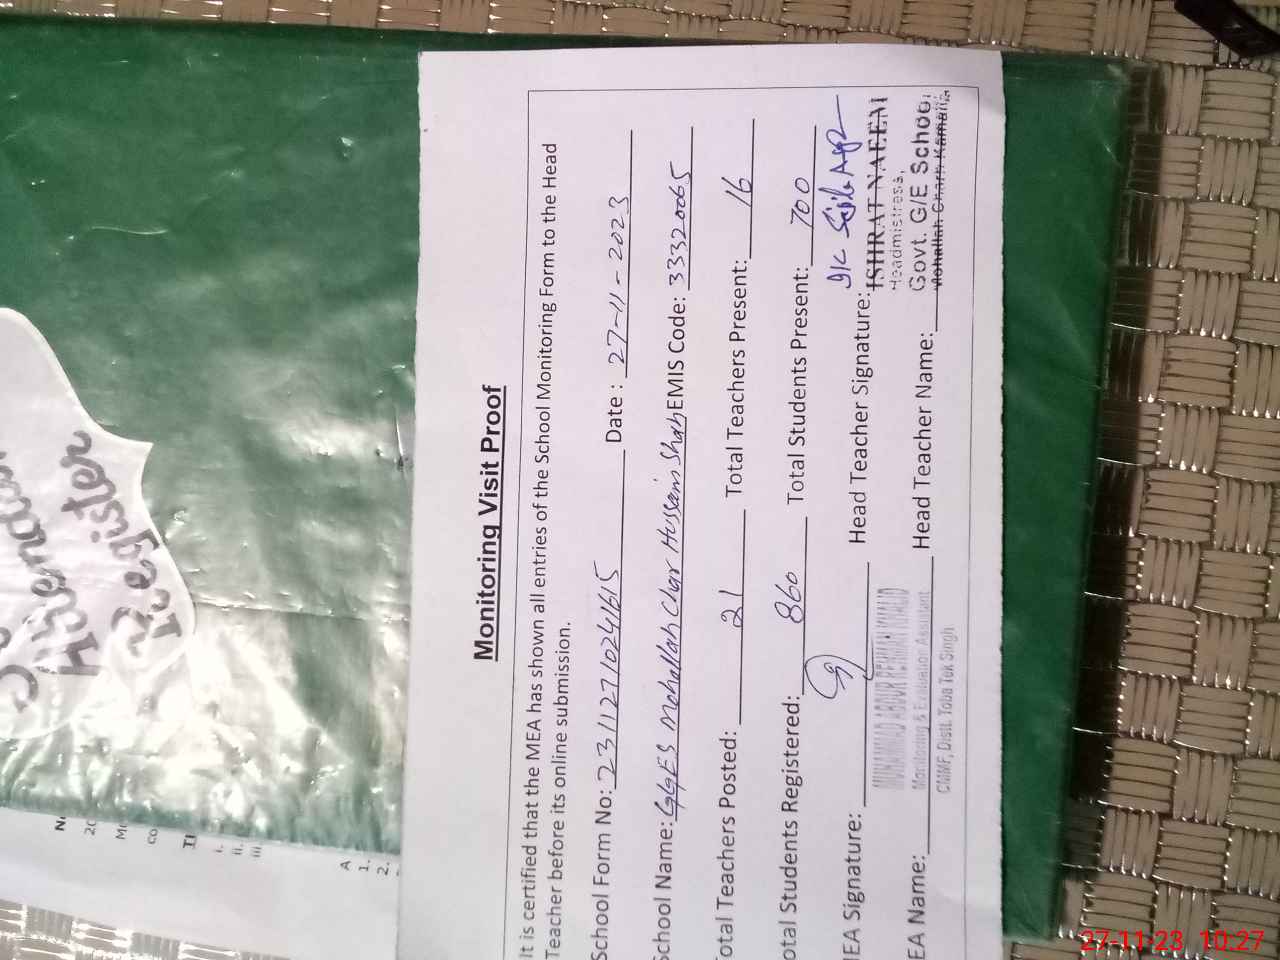 Attendance
Register
Monitoring Visit Proof
It is certified that the MEA has shown all entries of the School Monitoring Form to the Head
Teacher before its online submission.
School Form No: 23112710241615 Date : 27-11-2023
School Name: GGES Mohallah Char Hussain Shah EMIS Code: 33320065
Total Teachers Posted: 21 Total Teachers Present: 16
otal Students Registered: 860 Total Students Present: 700
IEA Signature: Head Teacher Signature: I/C
MUHAMMAD ABDUR REHMAN KHALID ISHRAT NAEEM
Headmistress,
EA Name: Monitoring & Evaluation Assistant Head Teacher Name: Govt. G/E School
CMMF, Distt. Toba Tek Singh Mohallah Kamalia
N
20
M
co
TI
i.
ii.
iii
A
1.
2.
27-11-23 10:27